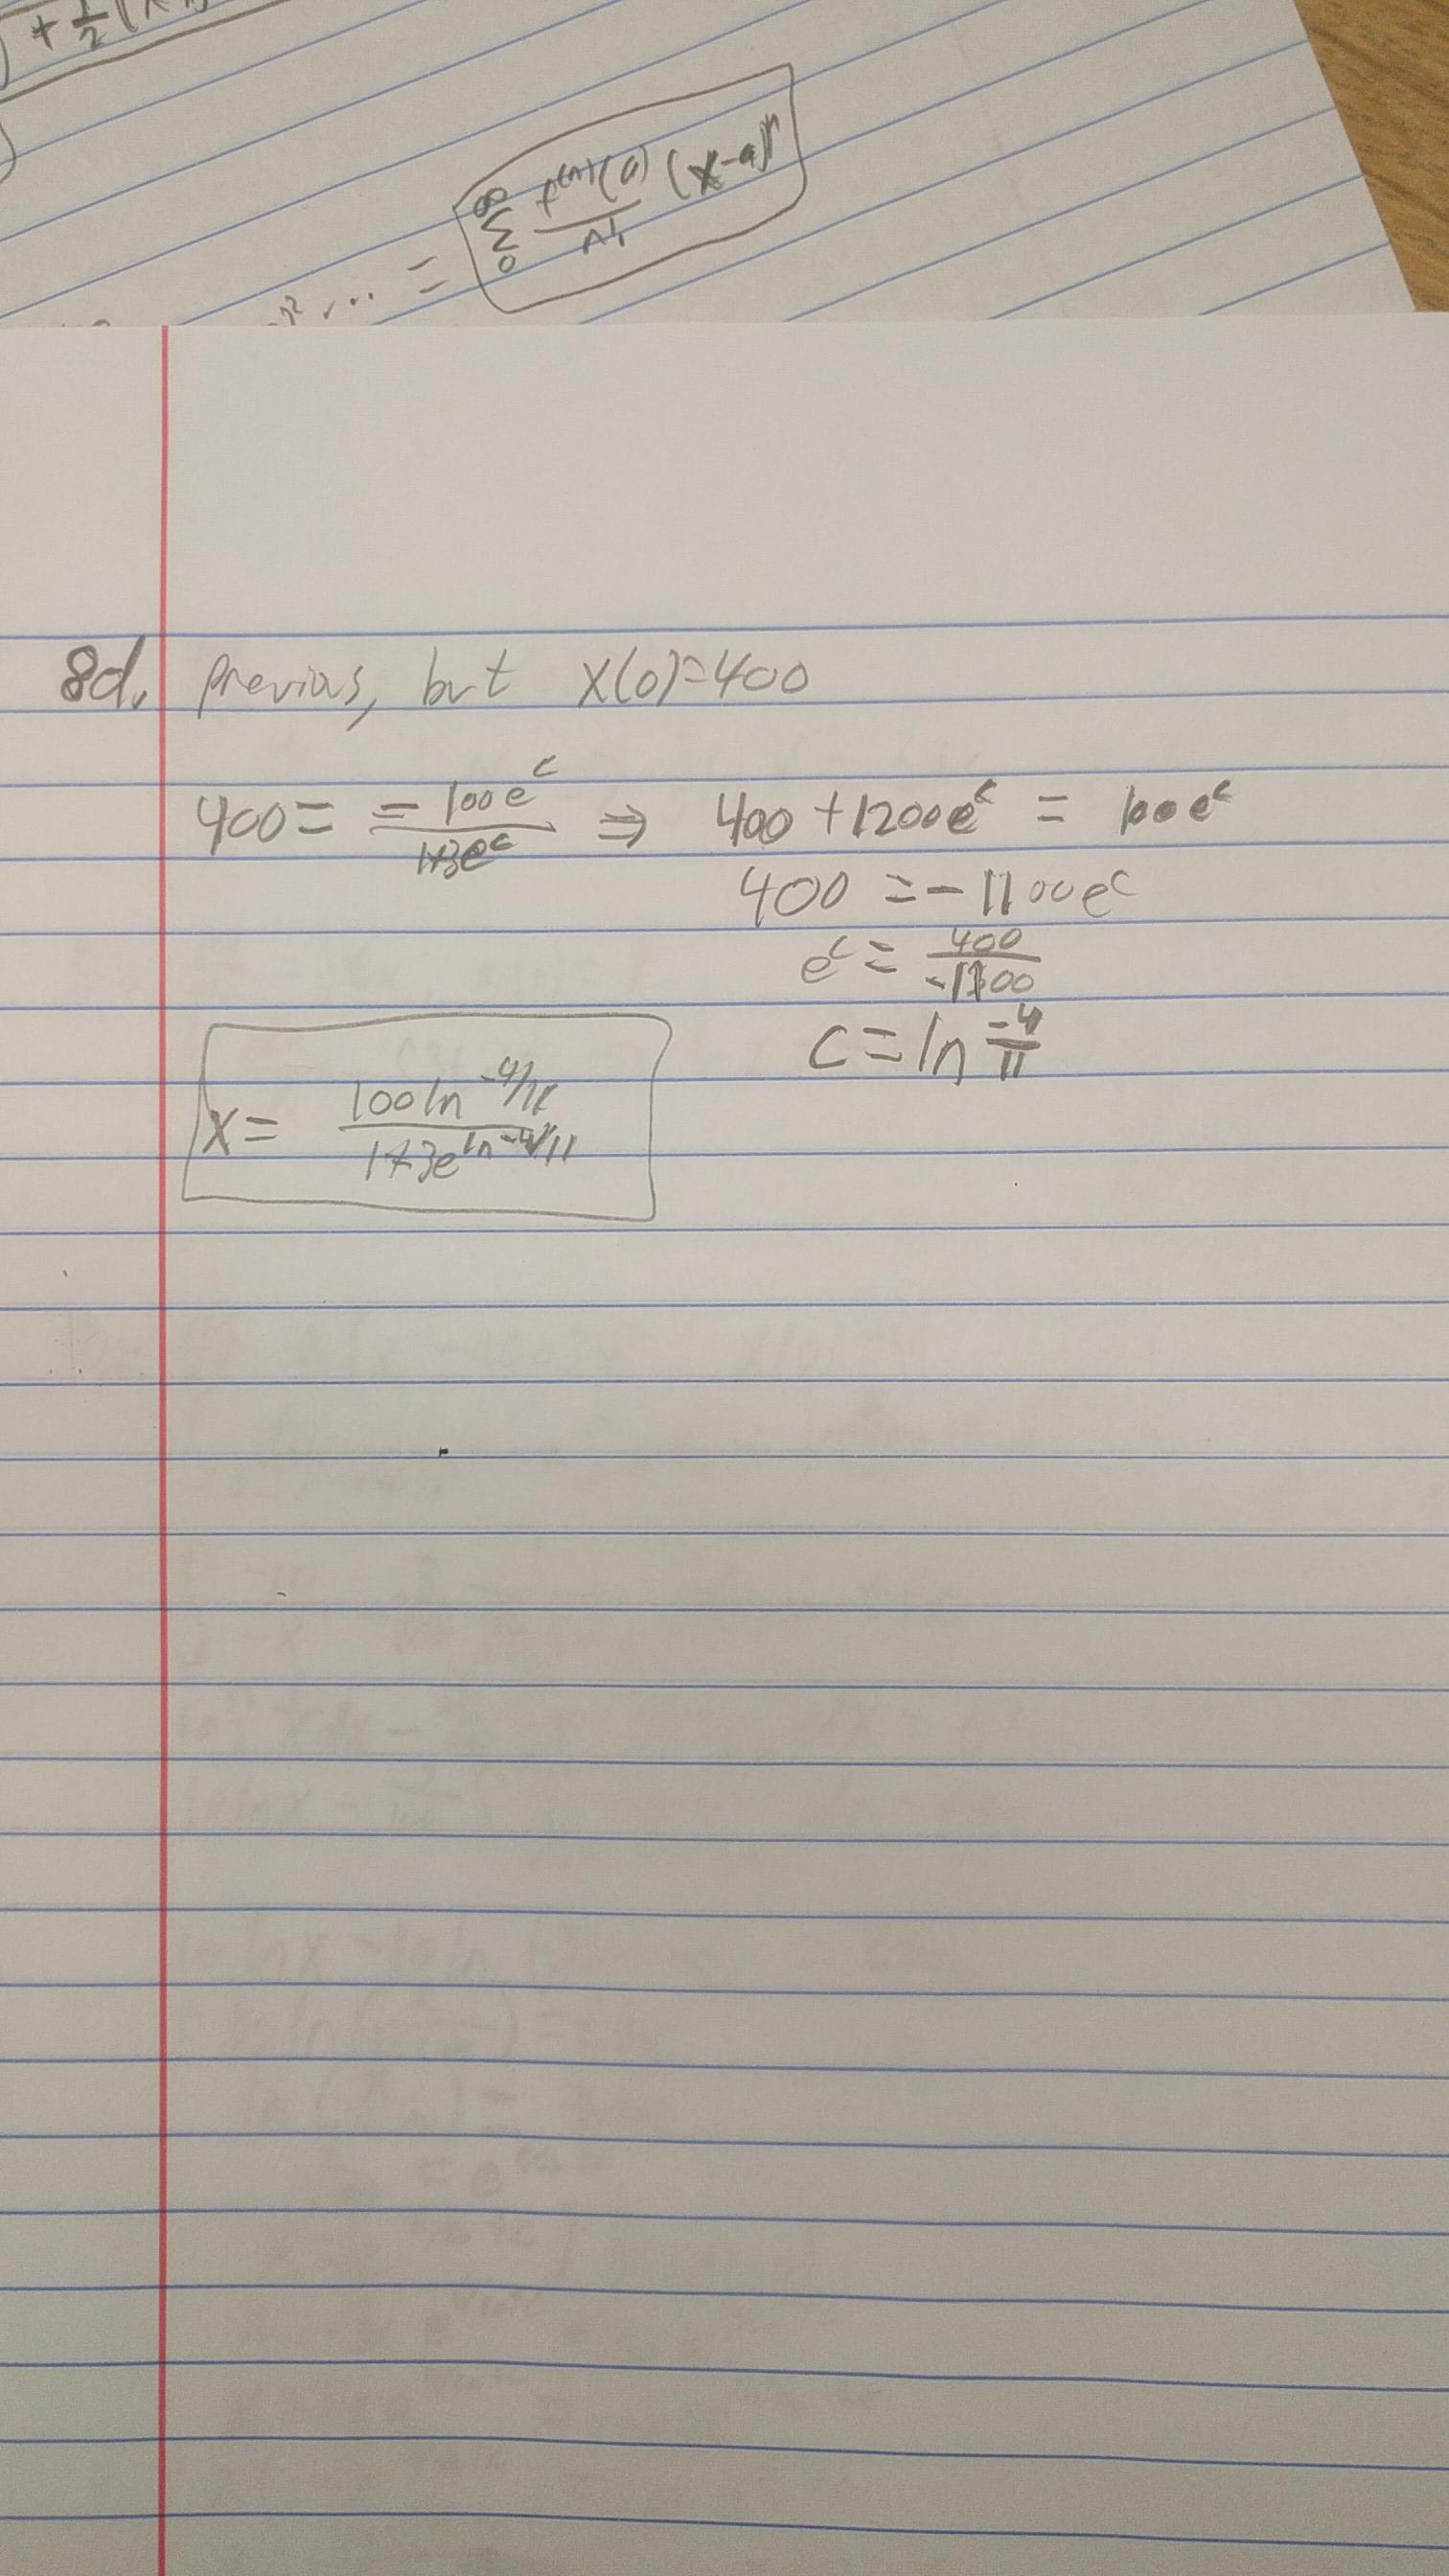 + 1/2 (x
... = ∞ Σ 0 f^(n)(a)/n! (x-a)^n
8d. previous, but x(0)=400
400 = = 100e^c / 1+3e^c ⇒ 400 + 1200e^c = 100e^c
400 = -1100e^c
e^c = 400/-1100
c = ln -4/11
x = 100 ln^-4/11 / 1+3e^ln^-4/11